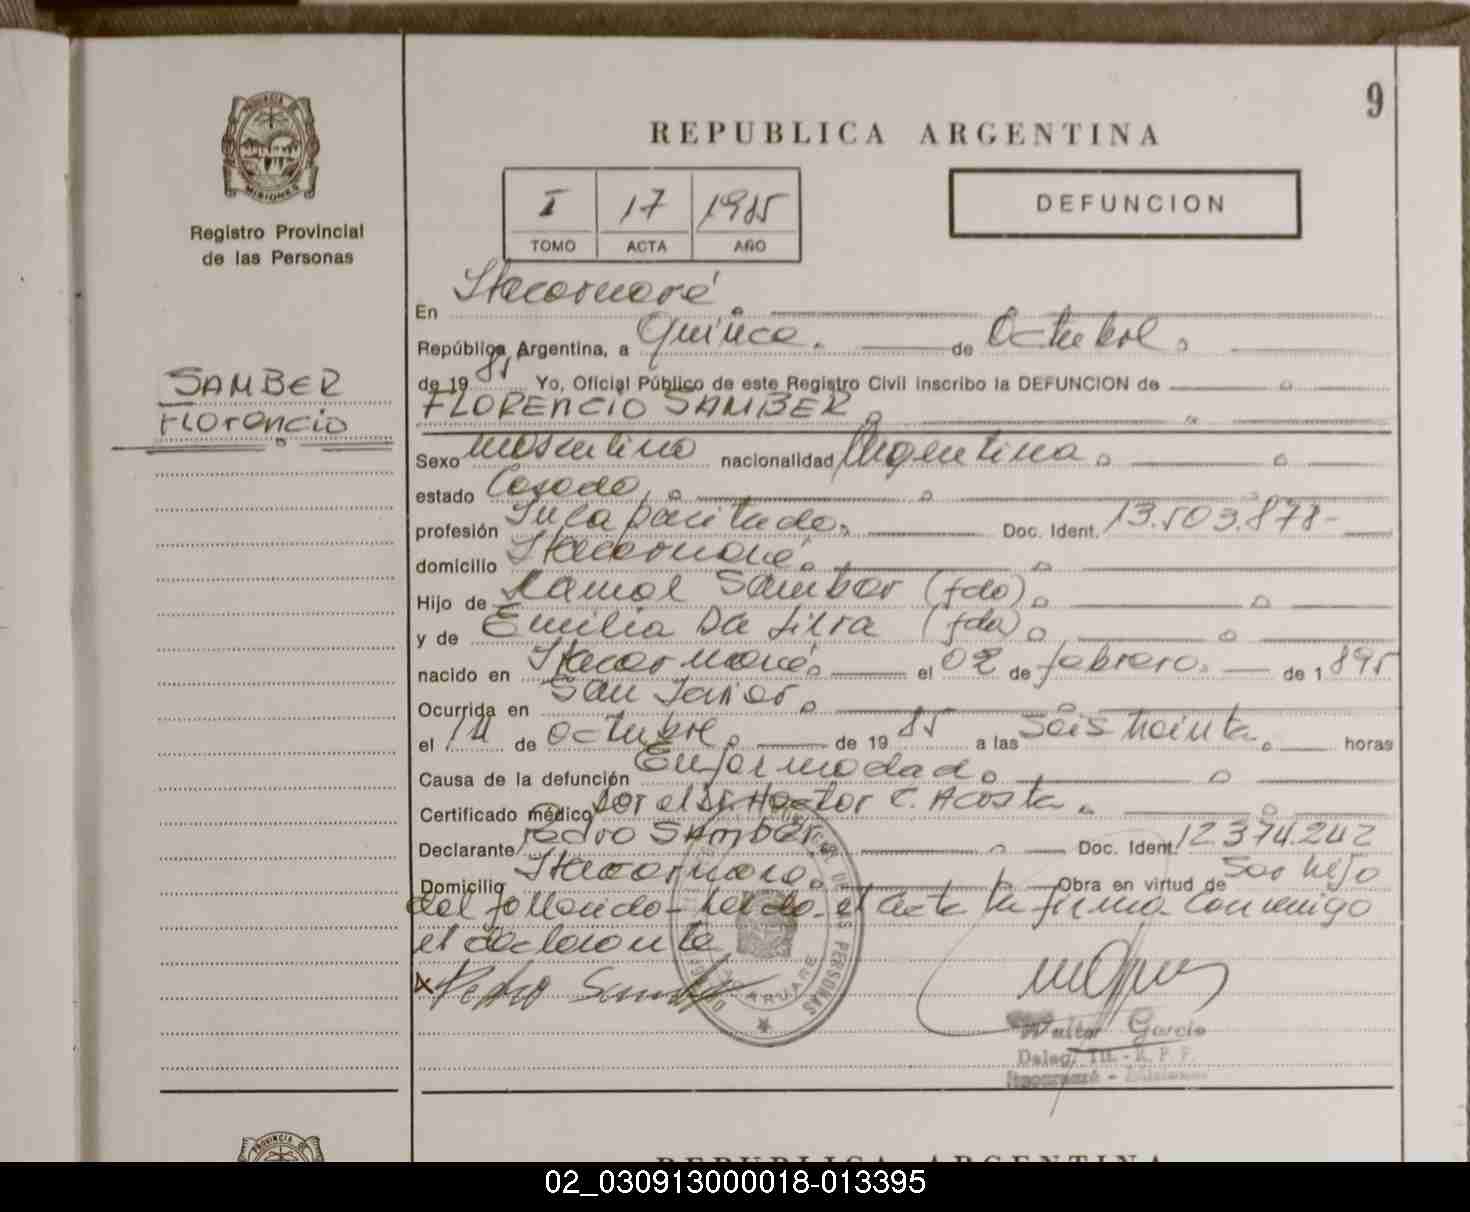 9
PROVINCIA DE
MISIONES
Registro Provincial
de las Personas
REPUBLICA ARGENTINA
I 17 1985
TOMO ACTA AÑO
DEFUNCION
SAMBER
Florencio
En Itacaruaré
República Argentina, a Quince de Octubre
de 19 85 Yo, Oficial Público de este Registro Civil inscribo la DEFUNCION de
FLORENCIO SAMBER
Sexo Masculino nacionalidad Argentina
estado Casado
profesión Incapacitado Doc. Ident. 13.503.878-
domicilio Itacaruaré
Hijo de Samber (fdo)
y de Emilia Da Silva (fda)
nacido en Itacaruaré el 02 de febrero de 1 895
Ocurrida en San Javier
el 14 de octubre de 19 85 a las seis treinta horas
Causa de la defunción Enfermedad
Certificado médico por el Dr. Hector C. Acosta
Declarante Pedro SAMBER Doc. Ident. 12.374.242
Domicilio Itacaruaré Obra en virtud de ser hijo
del fallecido - Leida el acta la firma conmigo
el declarante
x Pedro Samber
DE LAS PERSONAS
Walter Garcia
Deleg. Tit. - R. P. P.
Itacaruaré - Misiones
PROVINCIA DE
REPUBLICA ARGENTINA
02_030913000018-013395